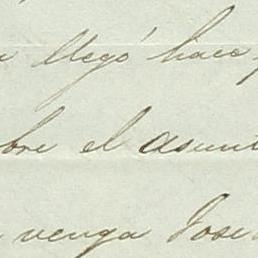 llegó hace
bre el asunt
venga Jose